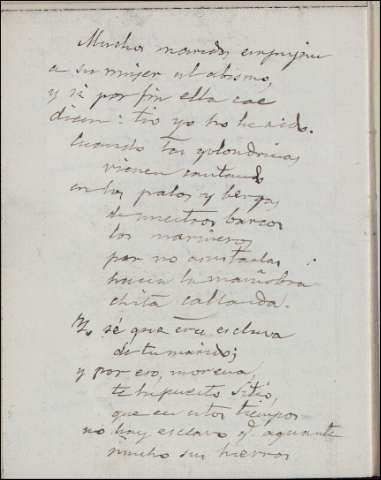 Muchos maridos empujan
a su mujer al abismo,
y si por fin ella cae
dicen: tio yo no he sido.
Cuando las golondrinas
vienen cantando
en los palos y bergas
de nuestros barcos
los marineros
por no asustarlas
hacen la maniobra
chita callada.
Yo sé que eres esclava
de tu marido;
y por eso, morena,
te he puesto sitio,
que en estos tiempos
no hay esclavo q. aguante
mucho sus hierros